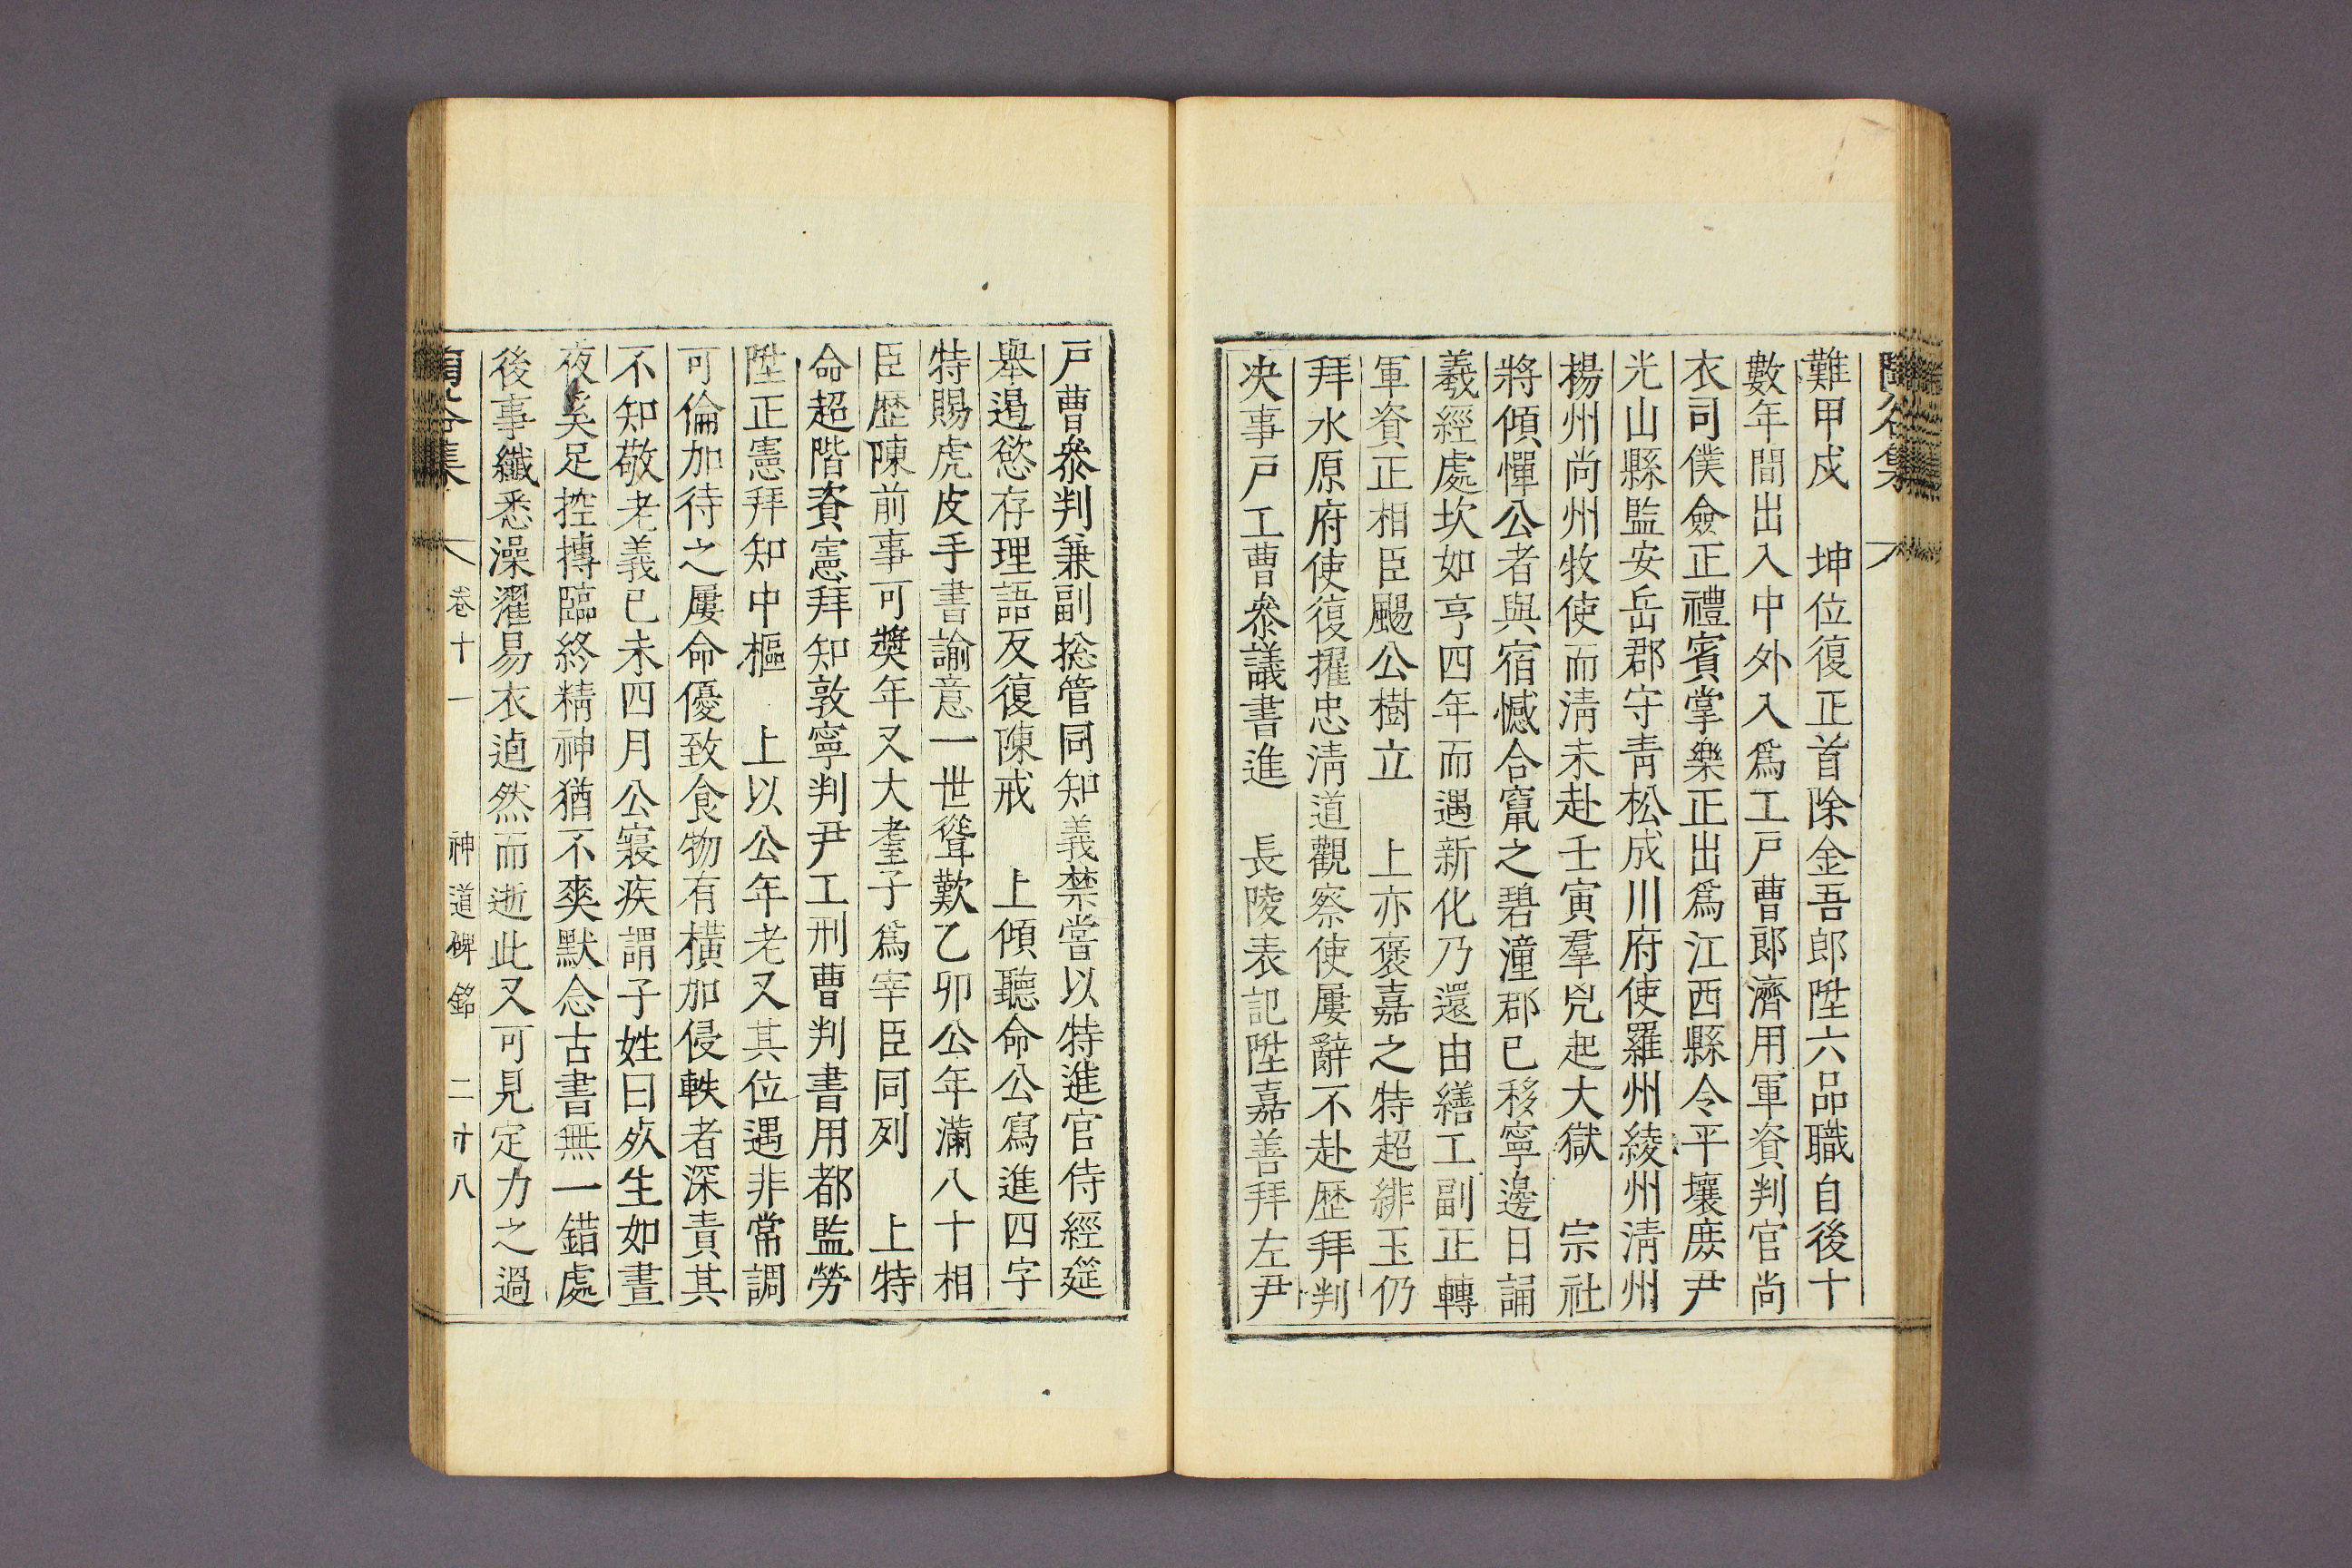 難甲戍　坤位復正首除金吾郎陞六品職自後十
數年間出入中外入爲工戶曹郞濟用軍資判官尙
衣司僕僉正禮賓掌樂正出爲江西縣令平壤庶尹
光山縣監安岳郡守靑松成川府使羅州綾州淸州
楊州尙州牧使而淸未赴壬寅羣兇起大獄　宗社
將傾憚公者與宿憾合竄之碧潼郡已移寧邊日誦
羲經處坎如亨四年而遇新化乃還由繕工副正轉
軍資正相臣颺公樹立　上亦褒嘉之特超緋玉仍
拜水原府使復擢忠淸道觀察使屢辭不赴歷拜判
决事戶工曹叅議書進　長陵表記陞嘉善拜左尹
戶曹叅判兼副摠管同知義禁嘗以特進官侍經筵
舉遏慾存理語反復陳戒　上傾聽命公寫進四字
特賜虎皮手書諭意一世聳歎乙卯公年滿八十相
臣歷陳前事可奬年又大耋子爲宰臣同列　上特
命超階資憲拜知敦寧判尹工刑曹判書用都監勞
陞正憲拜知中樞　上以公年老又其位遇非常調
可倫加待之屢命優致食物有橫加侵軼者深責其
不知敬老義已未四月公寢疾謂子姓曰死生如晝
夜奚足控摶臨終精神猶不爽默念古書無一錯處
後事纖悉澡濯易衣逌然而逝此又可見定力之過
陶谷集　卷十一　神道碑銘　二十八